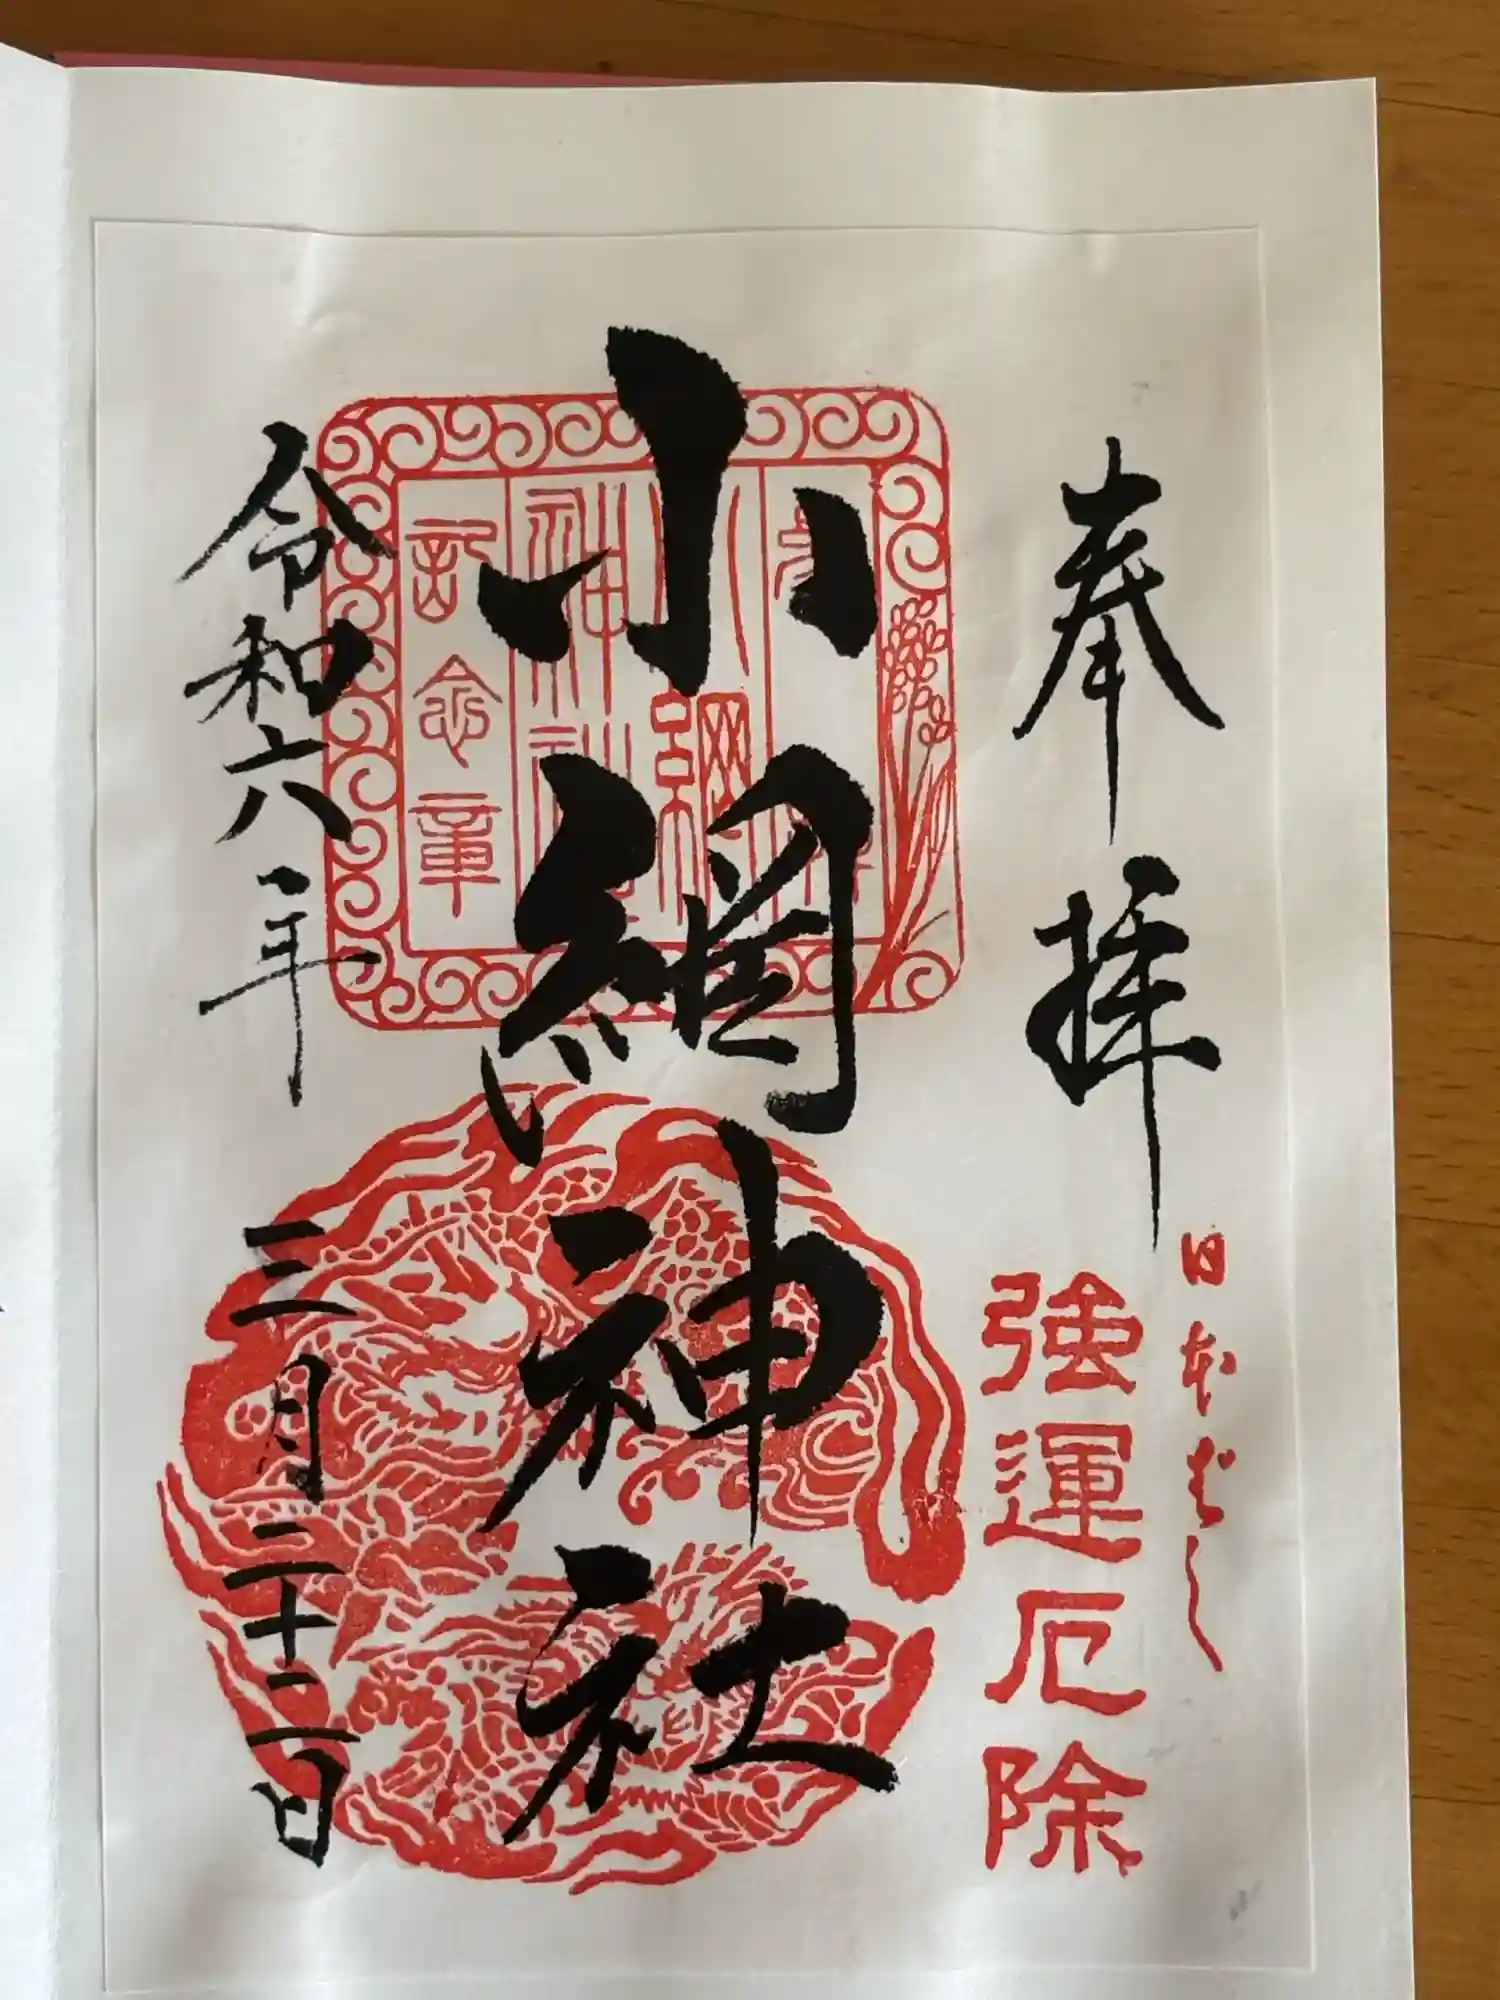 奉拝
日本ばし
強運厄除
小網神社
小網
神社
記念章
令和六年
三月二十二日